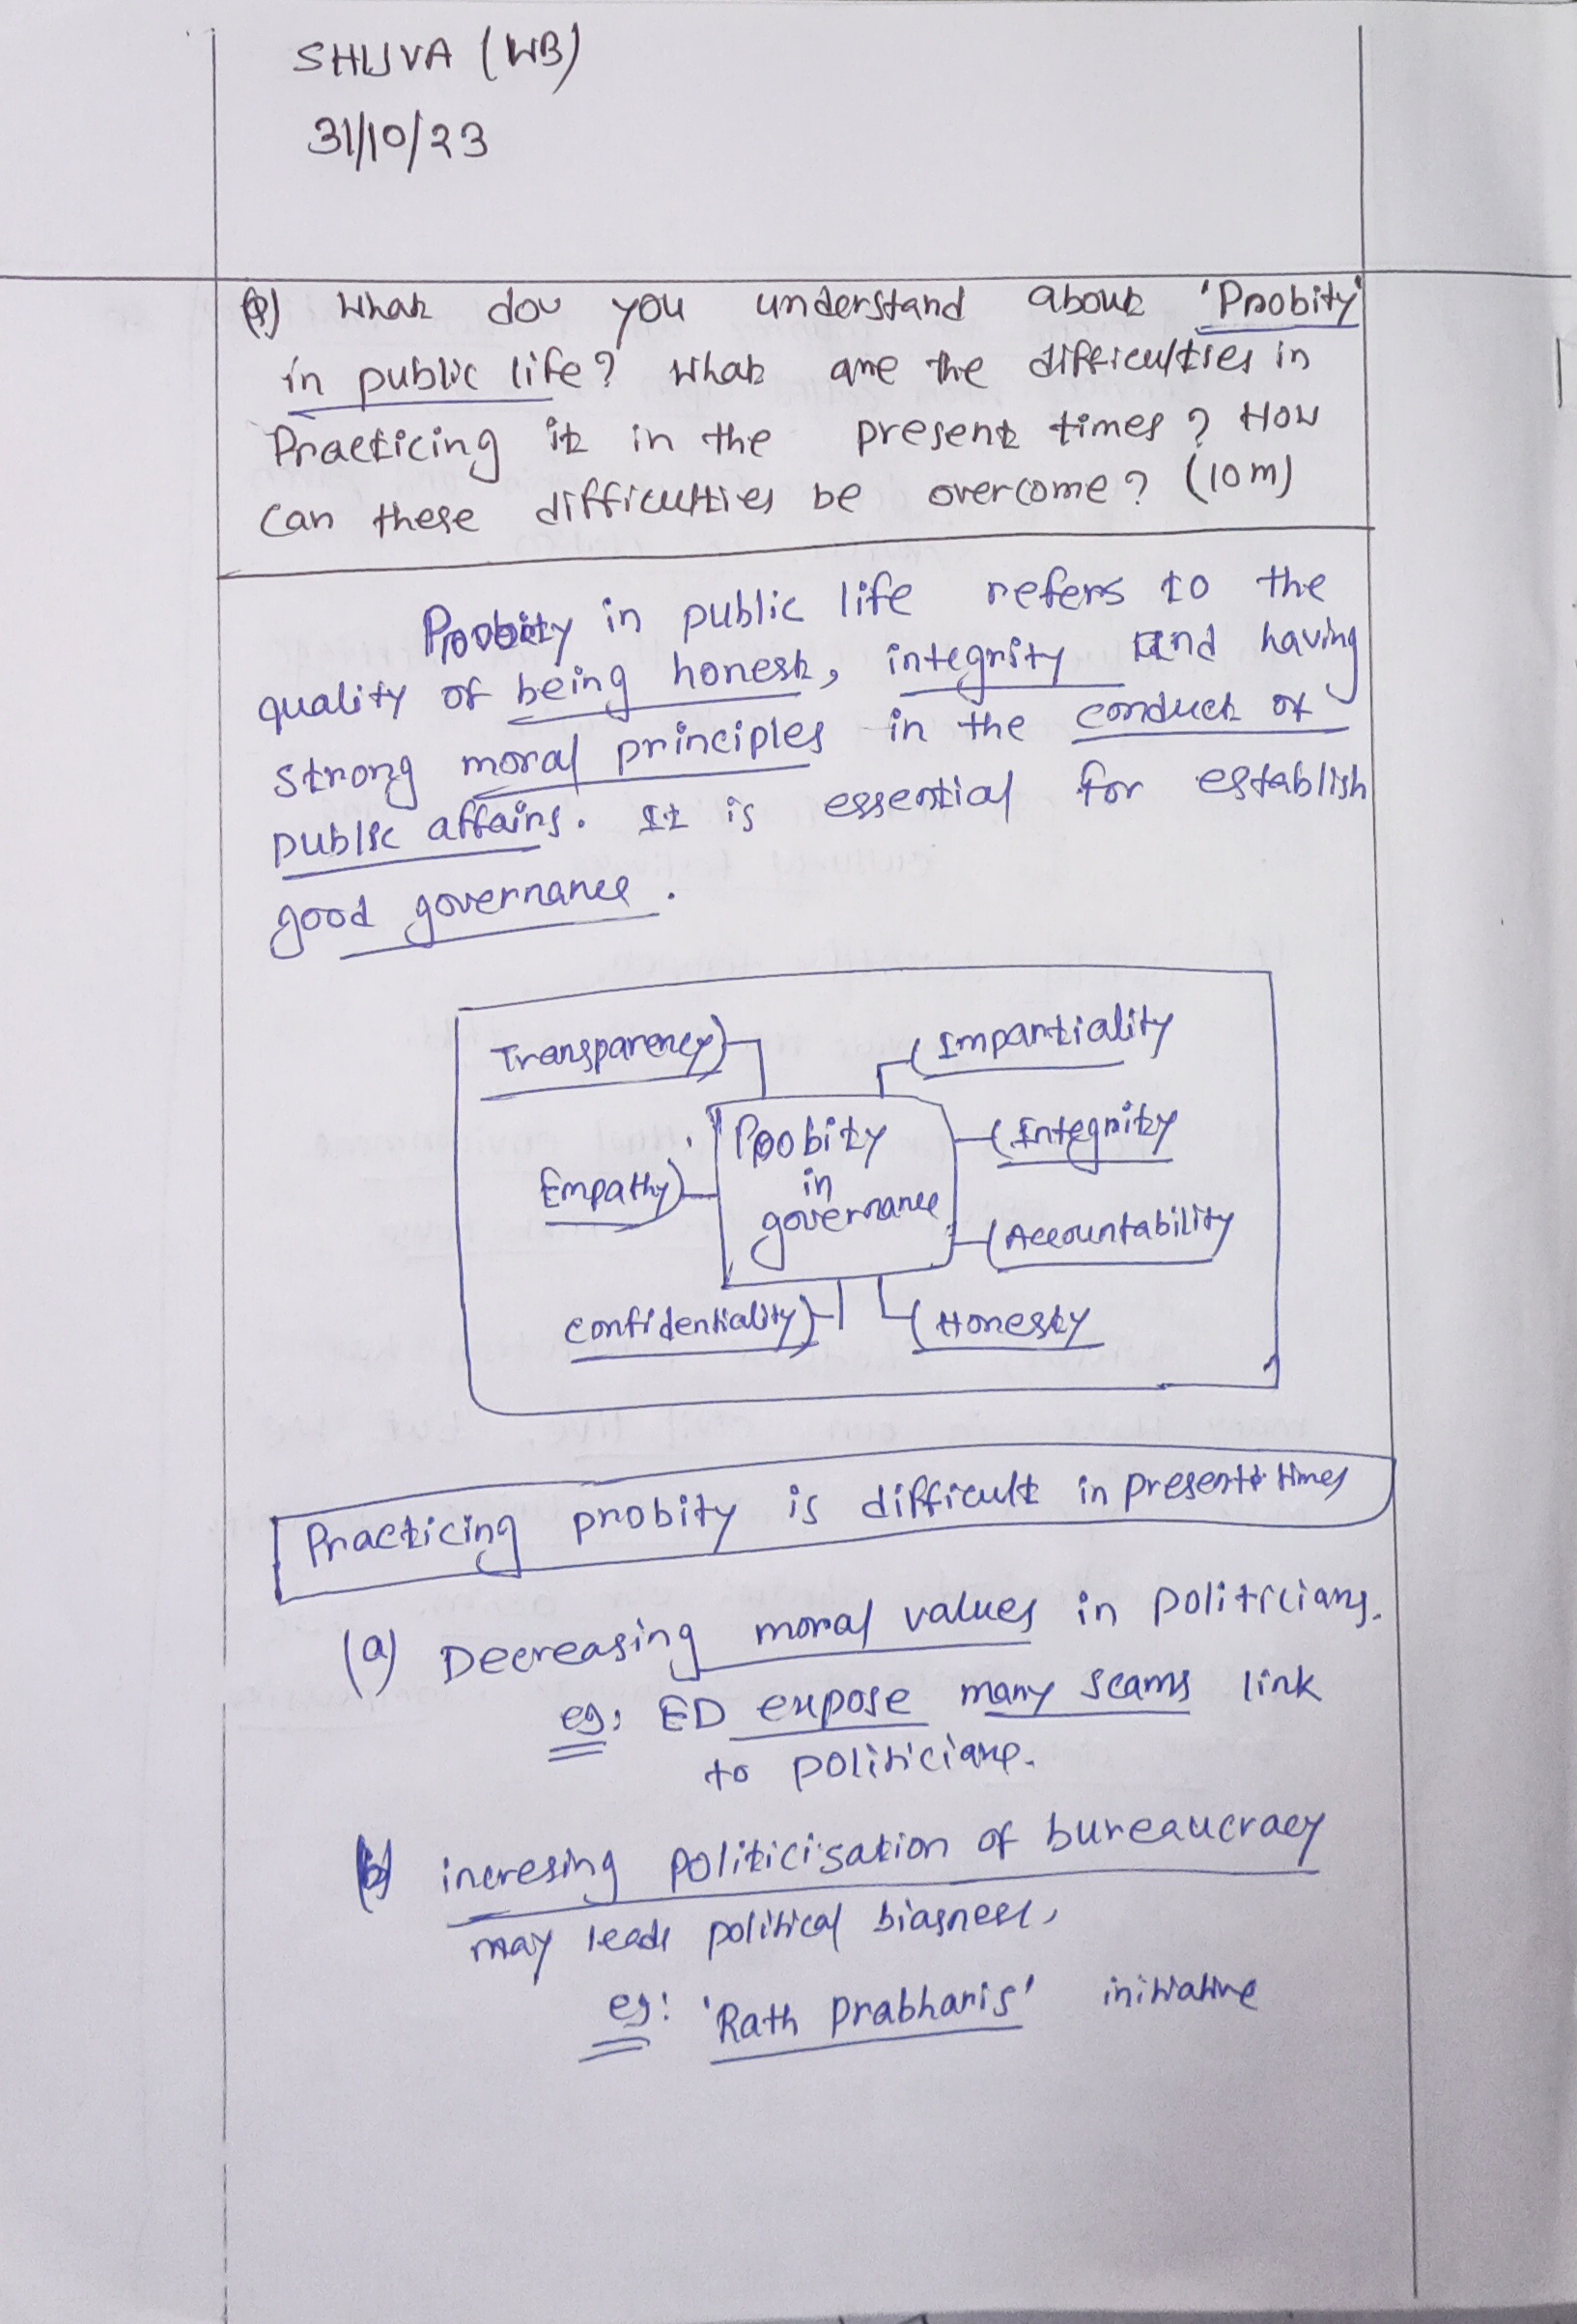 SHUVA (WB)
31/10/23
Q) What dou you understand about 'Probity'
in public life? What are the difficulties in
Practicing it in the present times? How
can these difficulties be overcome? (10m)
Probity in public life refers to the
quality of being honest, integrity and having
strong moral principles in the conduct of
public affairs. It is essential for establish
good governance.
Transparency
Impartiality
Probity
in
governance
Integrity
Empathy
Accountability
Confidentiality
Honesty
Practicing probity is difficult in present times
(a) Decreasing moral values in politicians.
eg: ED expose many scams link
to politicians.
(b) incresing politicisation of bureaucracy
may leads political biasness,
eg: 'Rath Prabharis' initiative